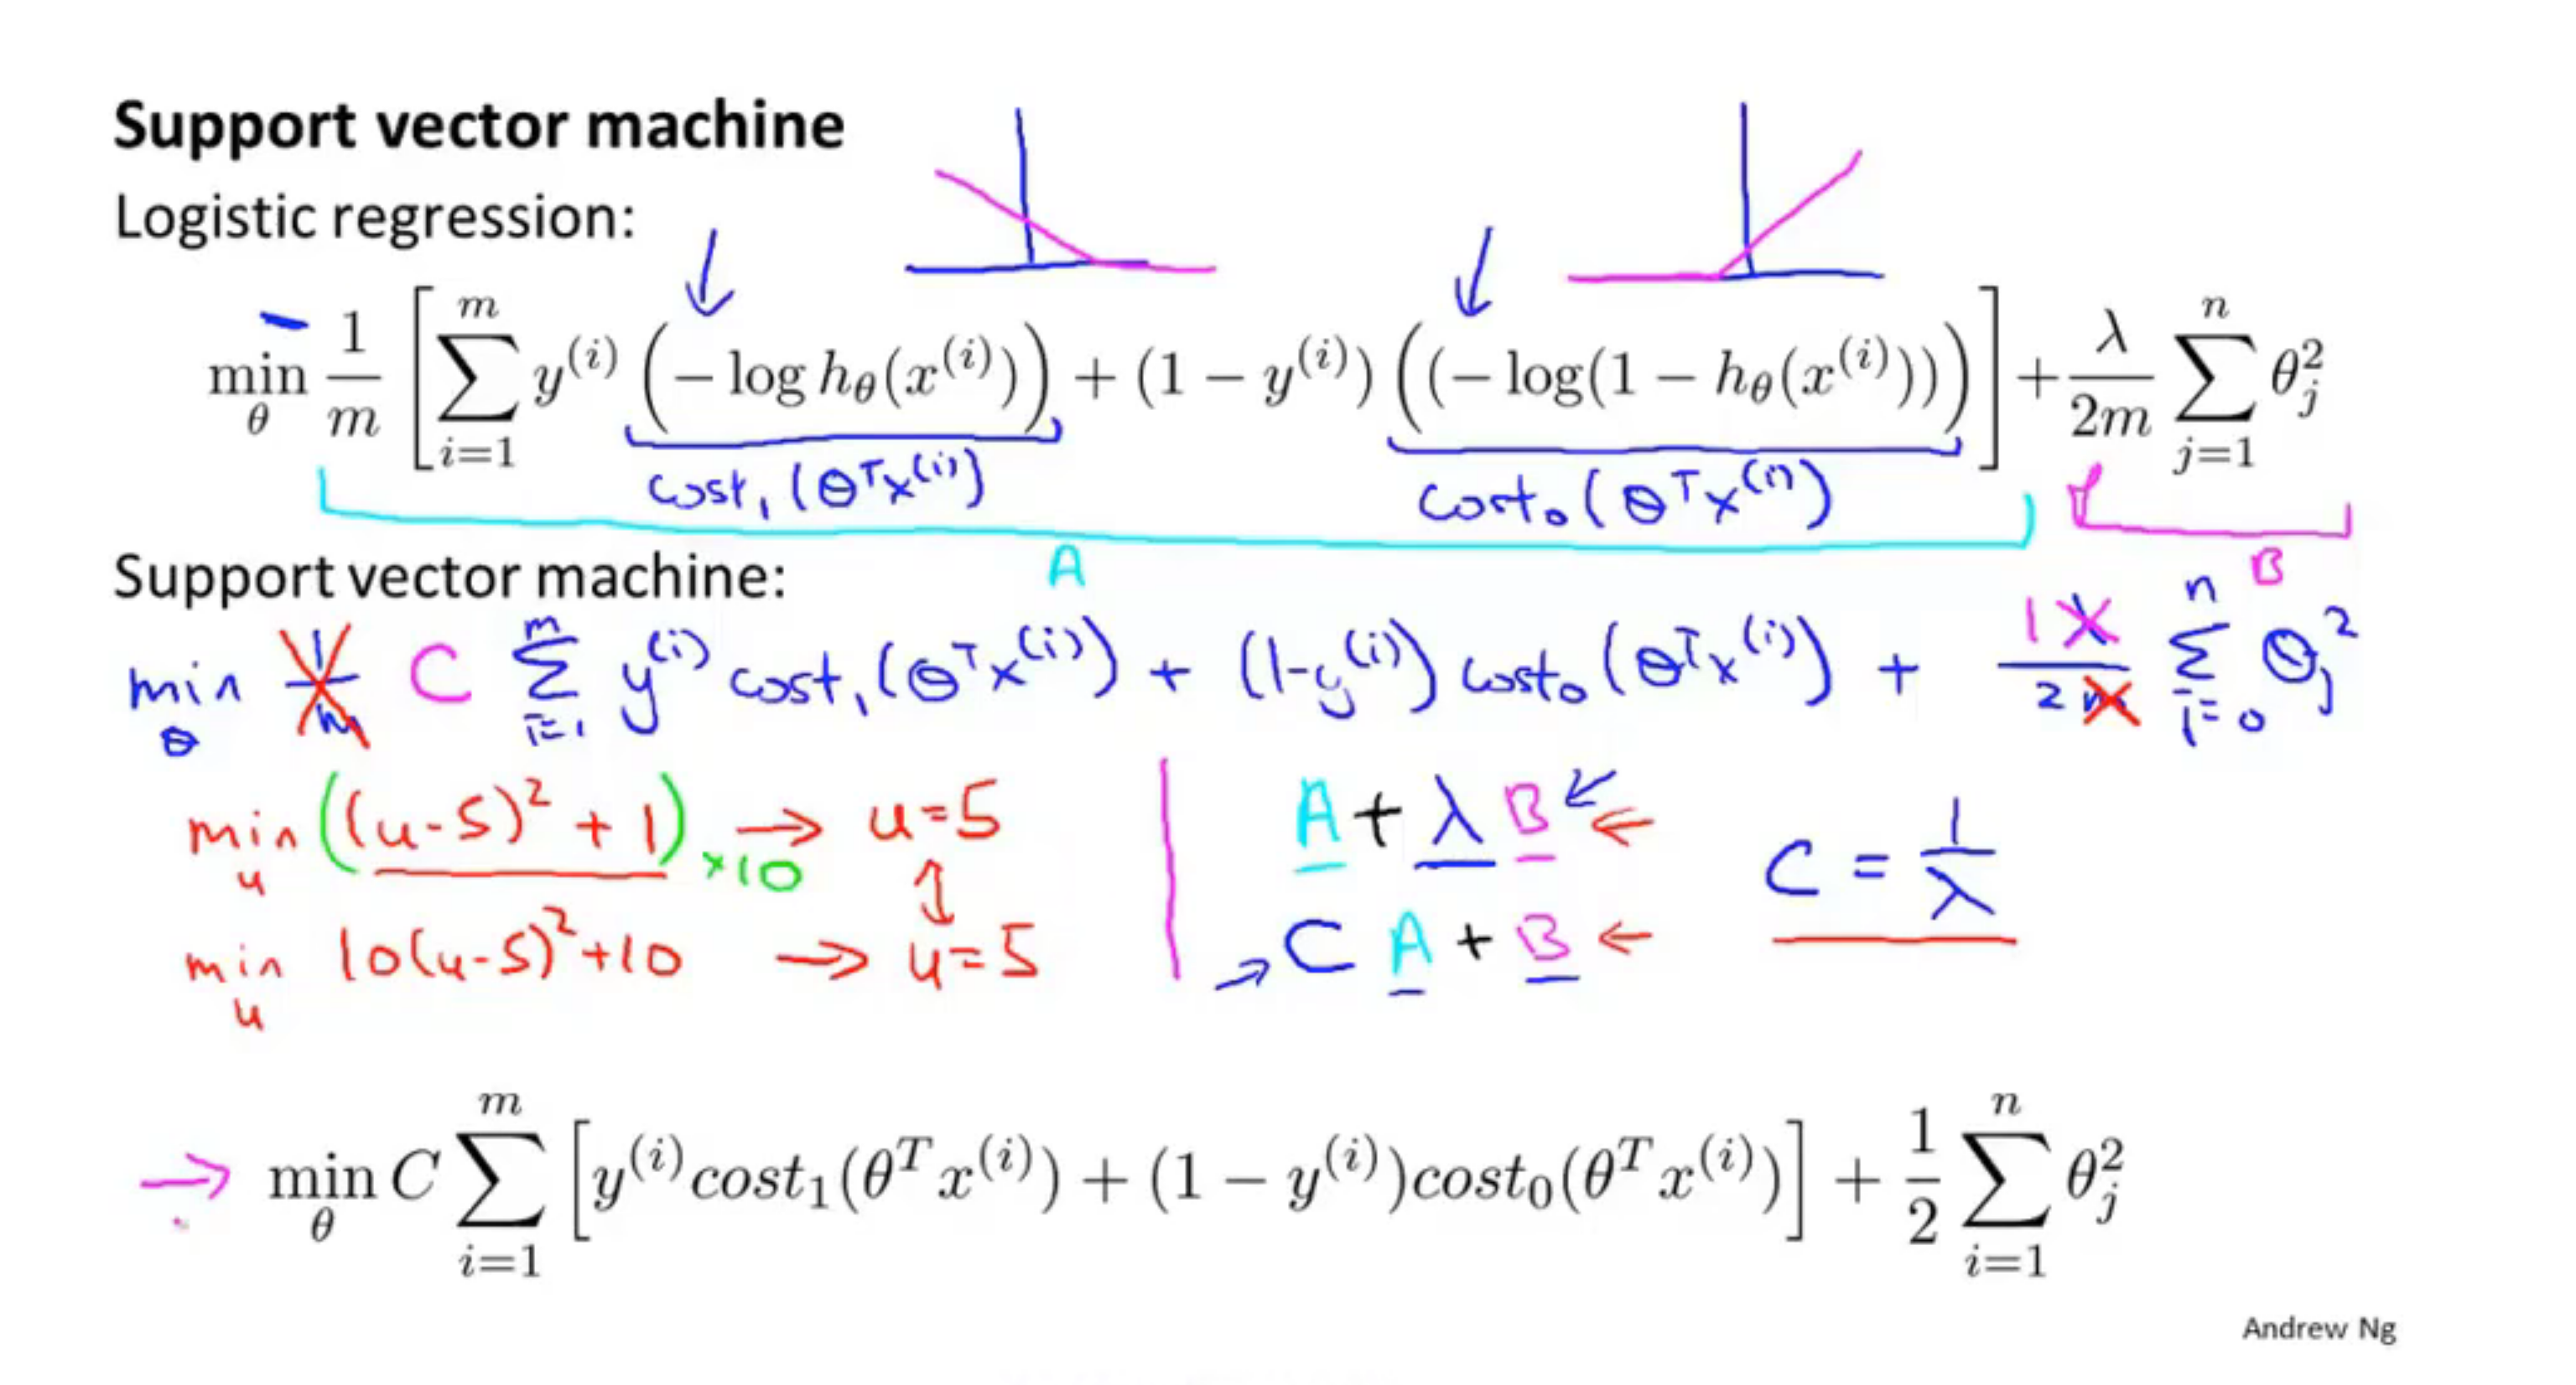 Support vector machine
Logistic regression:
min_θ 1/m [ ∑_{i=1}^{m} y^{(i)} (−log h_θ(x^{(i)})) + (1 − y^{(i)}) ((−log(1 − h_θ(x^{(i)}))) ] + λ/2m ∑_{j=1}^{n} θ_j^2
cost_1 (θ^T x^{(i)}) cost_0 (θ^T x^{(i)})
A B
Support vector machine:
min_θ 1/m C ∑_{i=1}^{m} y^{(i)} cost_1 (θ^T x^{(i)}) + (1-y^{(i)}) cost_0 (θ^T x^{(i)}) + 1 λ/2m ∑_{i=0}^{n} θ_j^2
min_u ((u-5)^2 + 1) ×10 → u=5
min_u 10(u-5)^2+10 → u=5
A + λ B ←
→ C A + B ←
C = 1/λ
→ min_θ C ∑_{i=1}^{m} [ y^{(i)} cost_1(θ^T x^{(i)}) + (1 − y^{(i)})cost_0(θ^T x^{(i)}) ] + 1/2 ∑_{i=1}^{n} θ_j^2
Andrew Ng